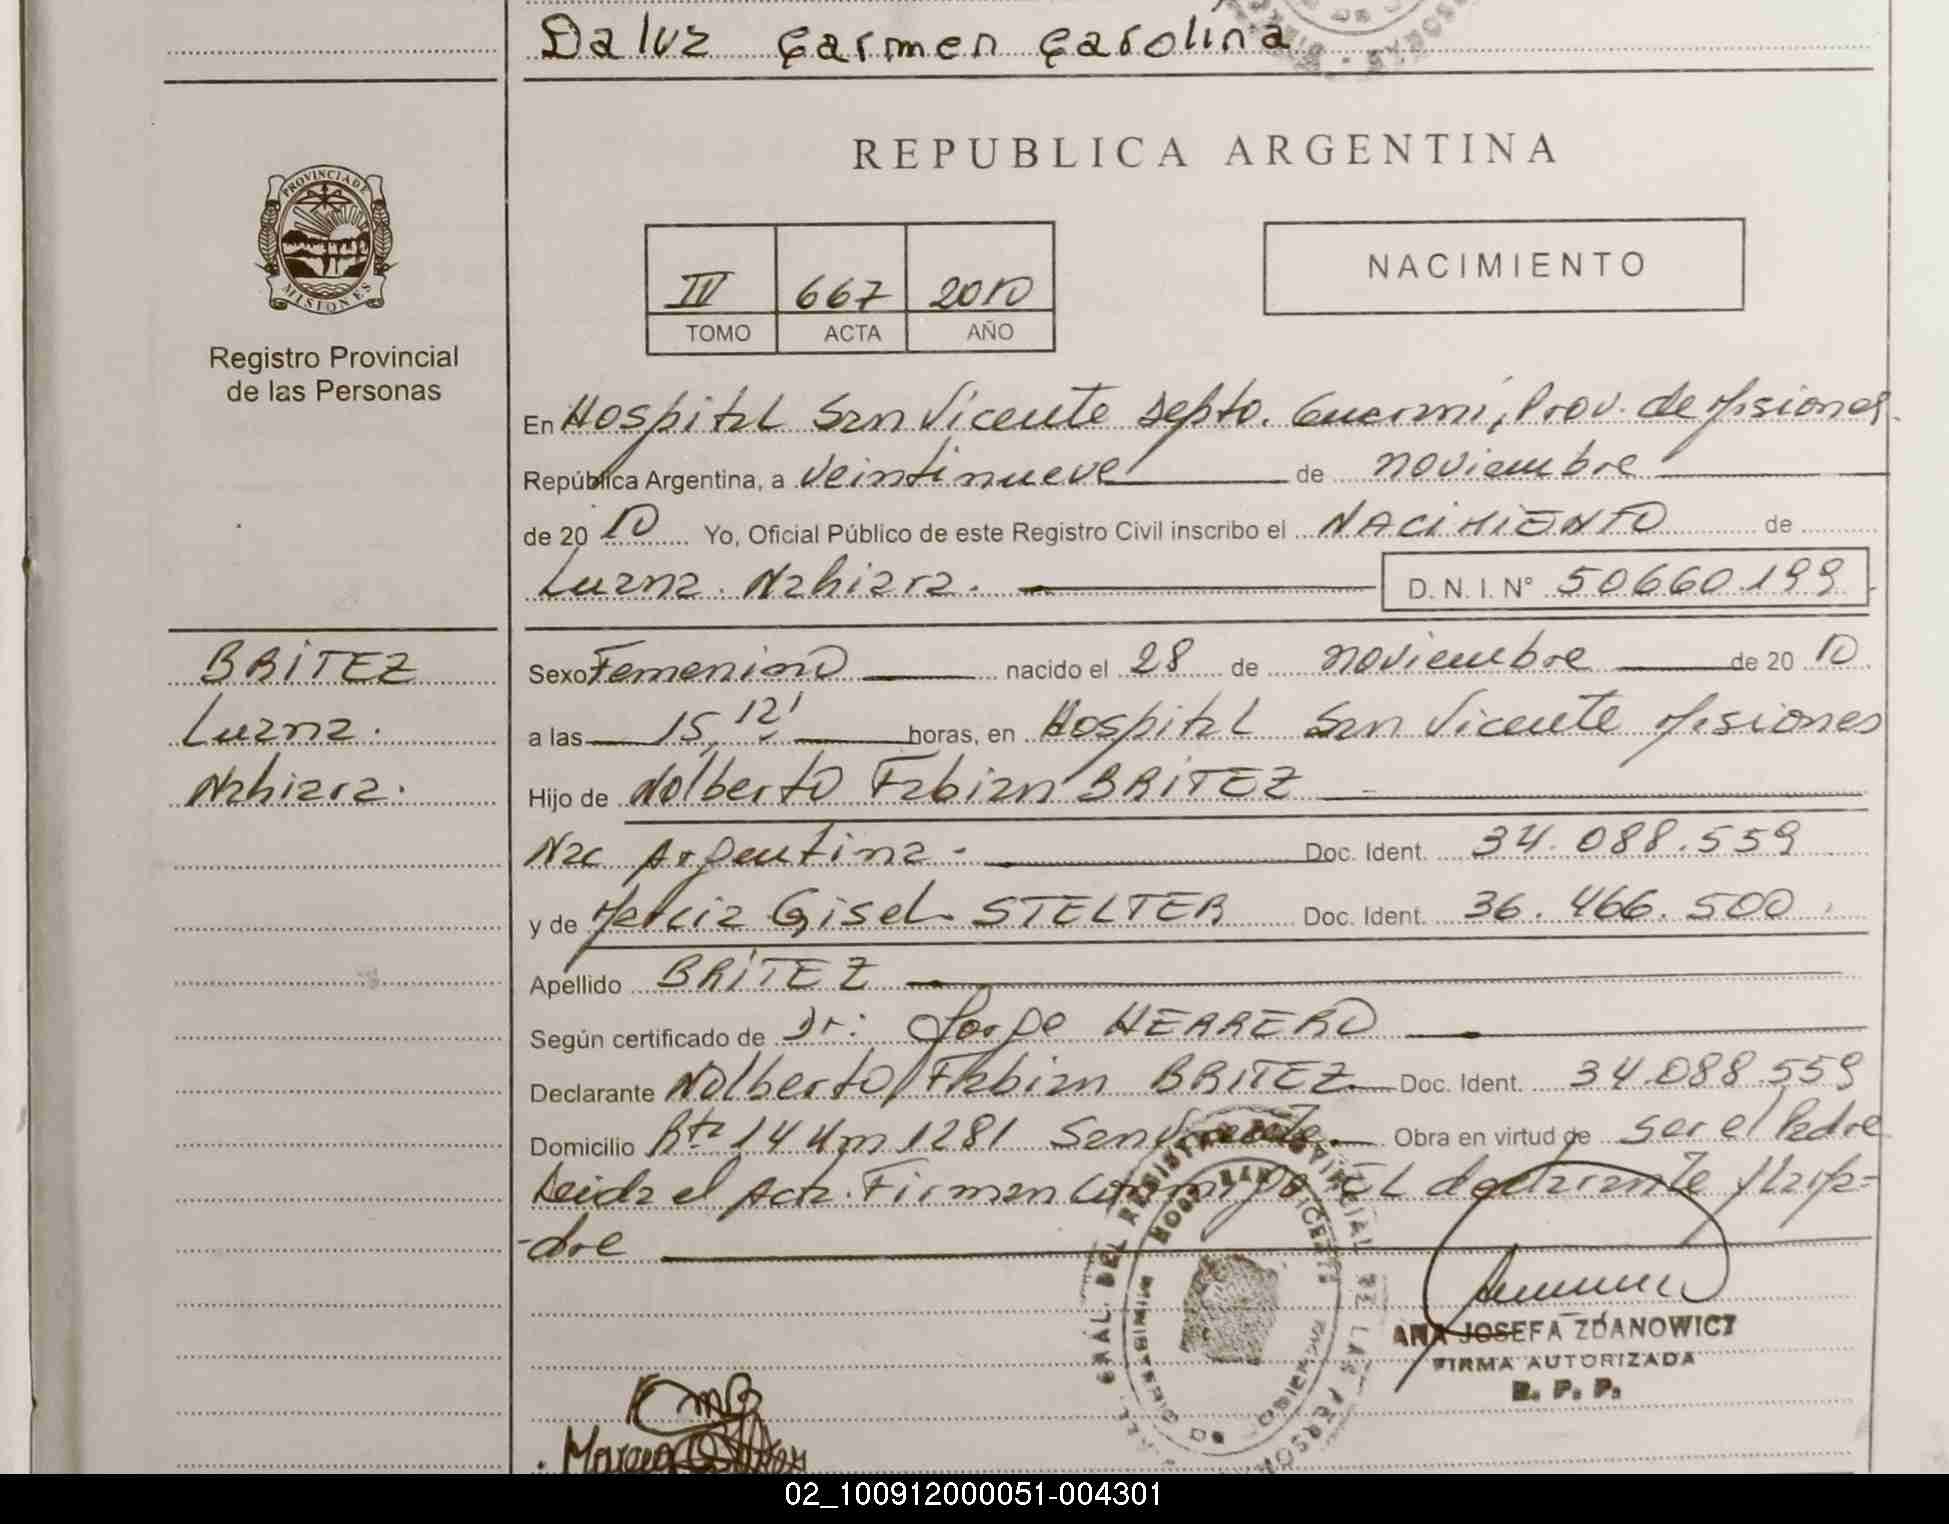 Da luz Carmen Carolina
PROVINCIA DE
MISIONES
Registro Provincial
de las Personas
REPUBLICA ARGENTINA
IV 667 2010
TOMO ACTA AÑO
NACIMIENTO
En Hospital San Vicente Depto. Guaraní, Prov. de Misiones.
República Argentina, a veintinueve de noviembre
de 2010 Yo, Oficial Público de este Registro Civil inscribo el NACIMIENTO de
Luana Nahiara. D. N. I. N° 50660.199
BRITEZ
Luana.
Nahiara.
Sexo Femenino nacido el 28 de noviembre de 2010
a las 15,12' horas, en Hospital San Vicente Misiones
Hijo de Nolberto Fabian BRITEZ
Nac Argentina - Doc. Ident. 34.088.559
y de Marcia Gisel STELTER Doc. Ident. 36.466.500
Apellido BRITEZ
Según certificado de Dr: Jorge HERRERO
Declarante Nolberto Fabian BRITEZ Doc. Ident. 34.088.559
Domicilio Rta 14 Km 1281 San Vicente Obra en virtud de ser el Padre
Leida el Acta. Firman conmigo EL declarante y la Ma-
-dre
ANA JOSEFA ZDANOWICZ
FIRMA AUTORIZADA
R. P. P.
02_100912000051-004301